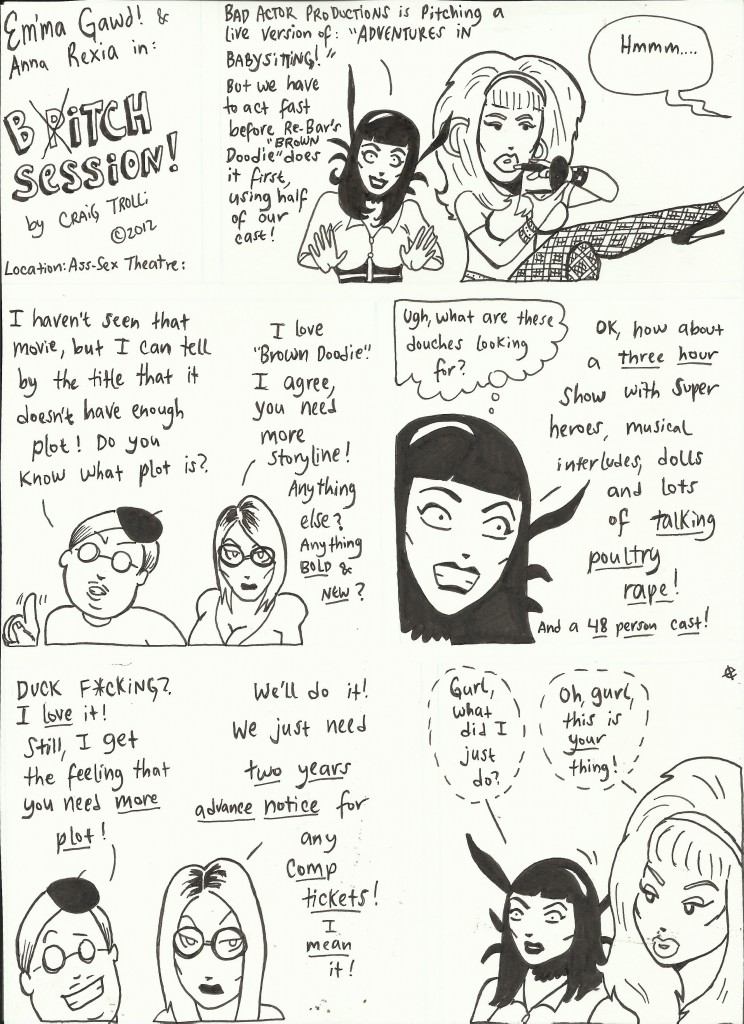 Emma Gawd! &
Anna Rexia in:
BRITCH
SESSION!
by CRAIG TROLLI
©2012
Location: Ass-Sex Theatre:
BAD ACTOR PRODUCTIONS is Pitching a
live version of: "ADVENTURES IN
BABYSITTING!"
But we have
to act fast
before Re-Bar's
"BROWN
Doodie" does
it first,
using half
of our
cast!
Hmmm....
I haven't seen that
movie, but I can tell
by the title that it
doesn't have enough
plot! Do you
know what plot is?
I love
"Brown Doodie".
I agree,
you need
more
storyline!
Anything
else?
Anything
BOLD &
NEW?
Ugh, what are these
douches looking
for?
OK, how about
a three hour
show with super
heroes, musical
interludes, dolls
and lots
of talking
poultry
rape!
And a 48 person cast!
DUCK F*CKING?
I love it!
Still, I get
the feeling that
you need more
plot!
We'll do it!
We just need
two years
advance notice for
any
comp
tickets!
I
mean
it!
Gurl,
what
did I
just
do?
Oh, gurl,
this is
your
thing!